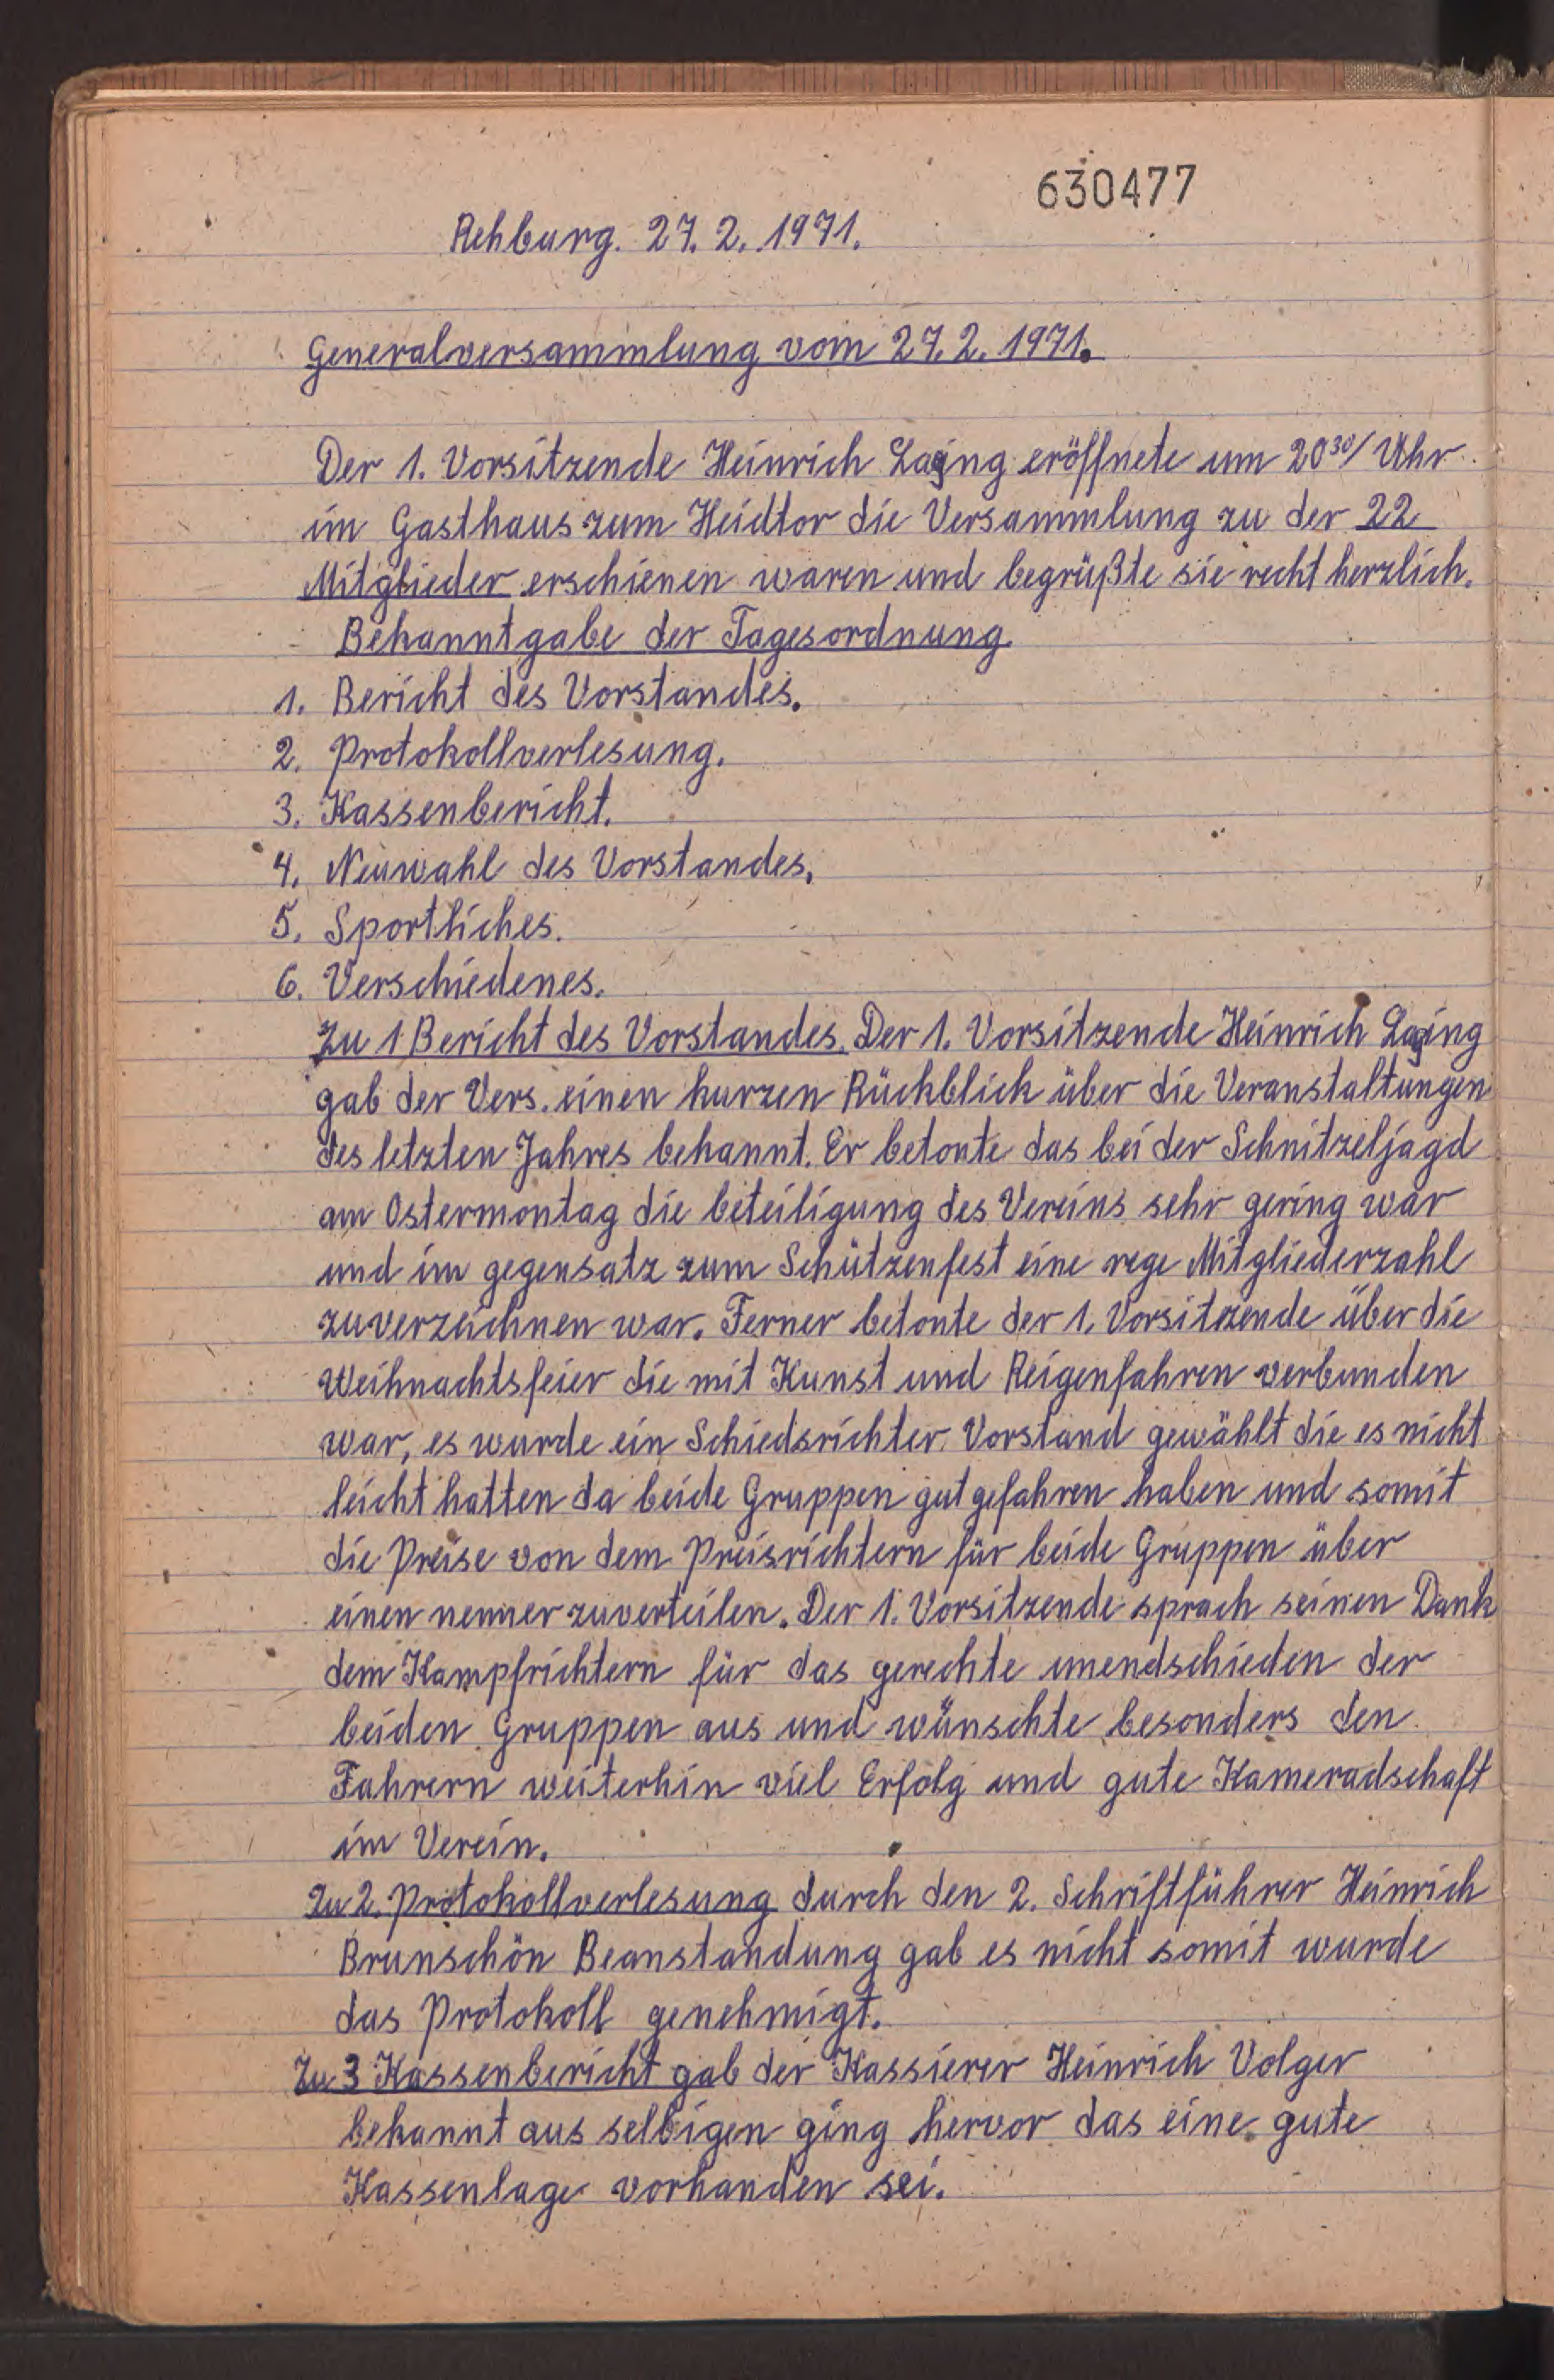 630477
Rehburg. 27. 2. 1971.
Generalversammlung vom 27. 2. 1971.
Der 1. Vorsitzende Heinrich eröffnete um 20³⁰/ Uhr
im Gasthaus zum Heidtor die Versammlung zu der 22
Mitglieder erschienen waren und begrüßte sie recht herzlich.
Bekanntgabe der Tagesordnung
1. Bericht des Vorstandes.
2. Protokollverlesung.
3. Kassenbericht.
4. Neuwahl des Vorstandes.
5. Sportliches.
6. Verschiedenes.
Zu 1 Bericht des Vorstandes. Der 1. Vorsitzende Heinrich
gab der Vers. einen kurzen Rückblick über die Veranstaltungen
des letzten Jahres bekannt. Er betonte das bei der Schnitzeljagd
am Ostermontag die beteiligung des Vereins sehr gering war
und im gegensatz zum Schützenfest eine rege Mitgliederzahl
zuverzeichnen war. Ferner betonte der 1. Vorsitzende über die
Weihnachtsfeier die mit Kunst und Reigenfahren verbunden
war, es wurde ein Schiedsrichter Vorstand gewählt die es nicht
leicht hatten da beide Gruppen gut gefahren haben und somit
die Preise von dem Preisrichtern für beide Gruppen über
einen nenner zuverteilen. Der 1. Vorsitzende sprach seinen Dank
dem Kampfrichtern für das gerechte unendschieden der
beiden Gruppen aus und wünschte besonders den
Fahrern weiterhin viel Erfolg und gute Kameradschaft
im Verein.
Zu 2. Protokollverlesung durch den 2. Schriftführer Heinrich
Brunschön Beanstandung gab es nicht somit wurde
das Protokoll genehmigt.
Zu 3 Kassenbericht gab der Kassierer Heinrich Volger
bekannt aus selbigen ging hervor das eine gute
Kassenlage vorhanden sei.